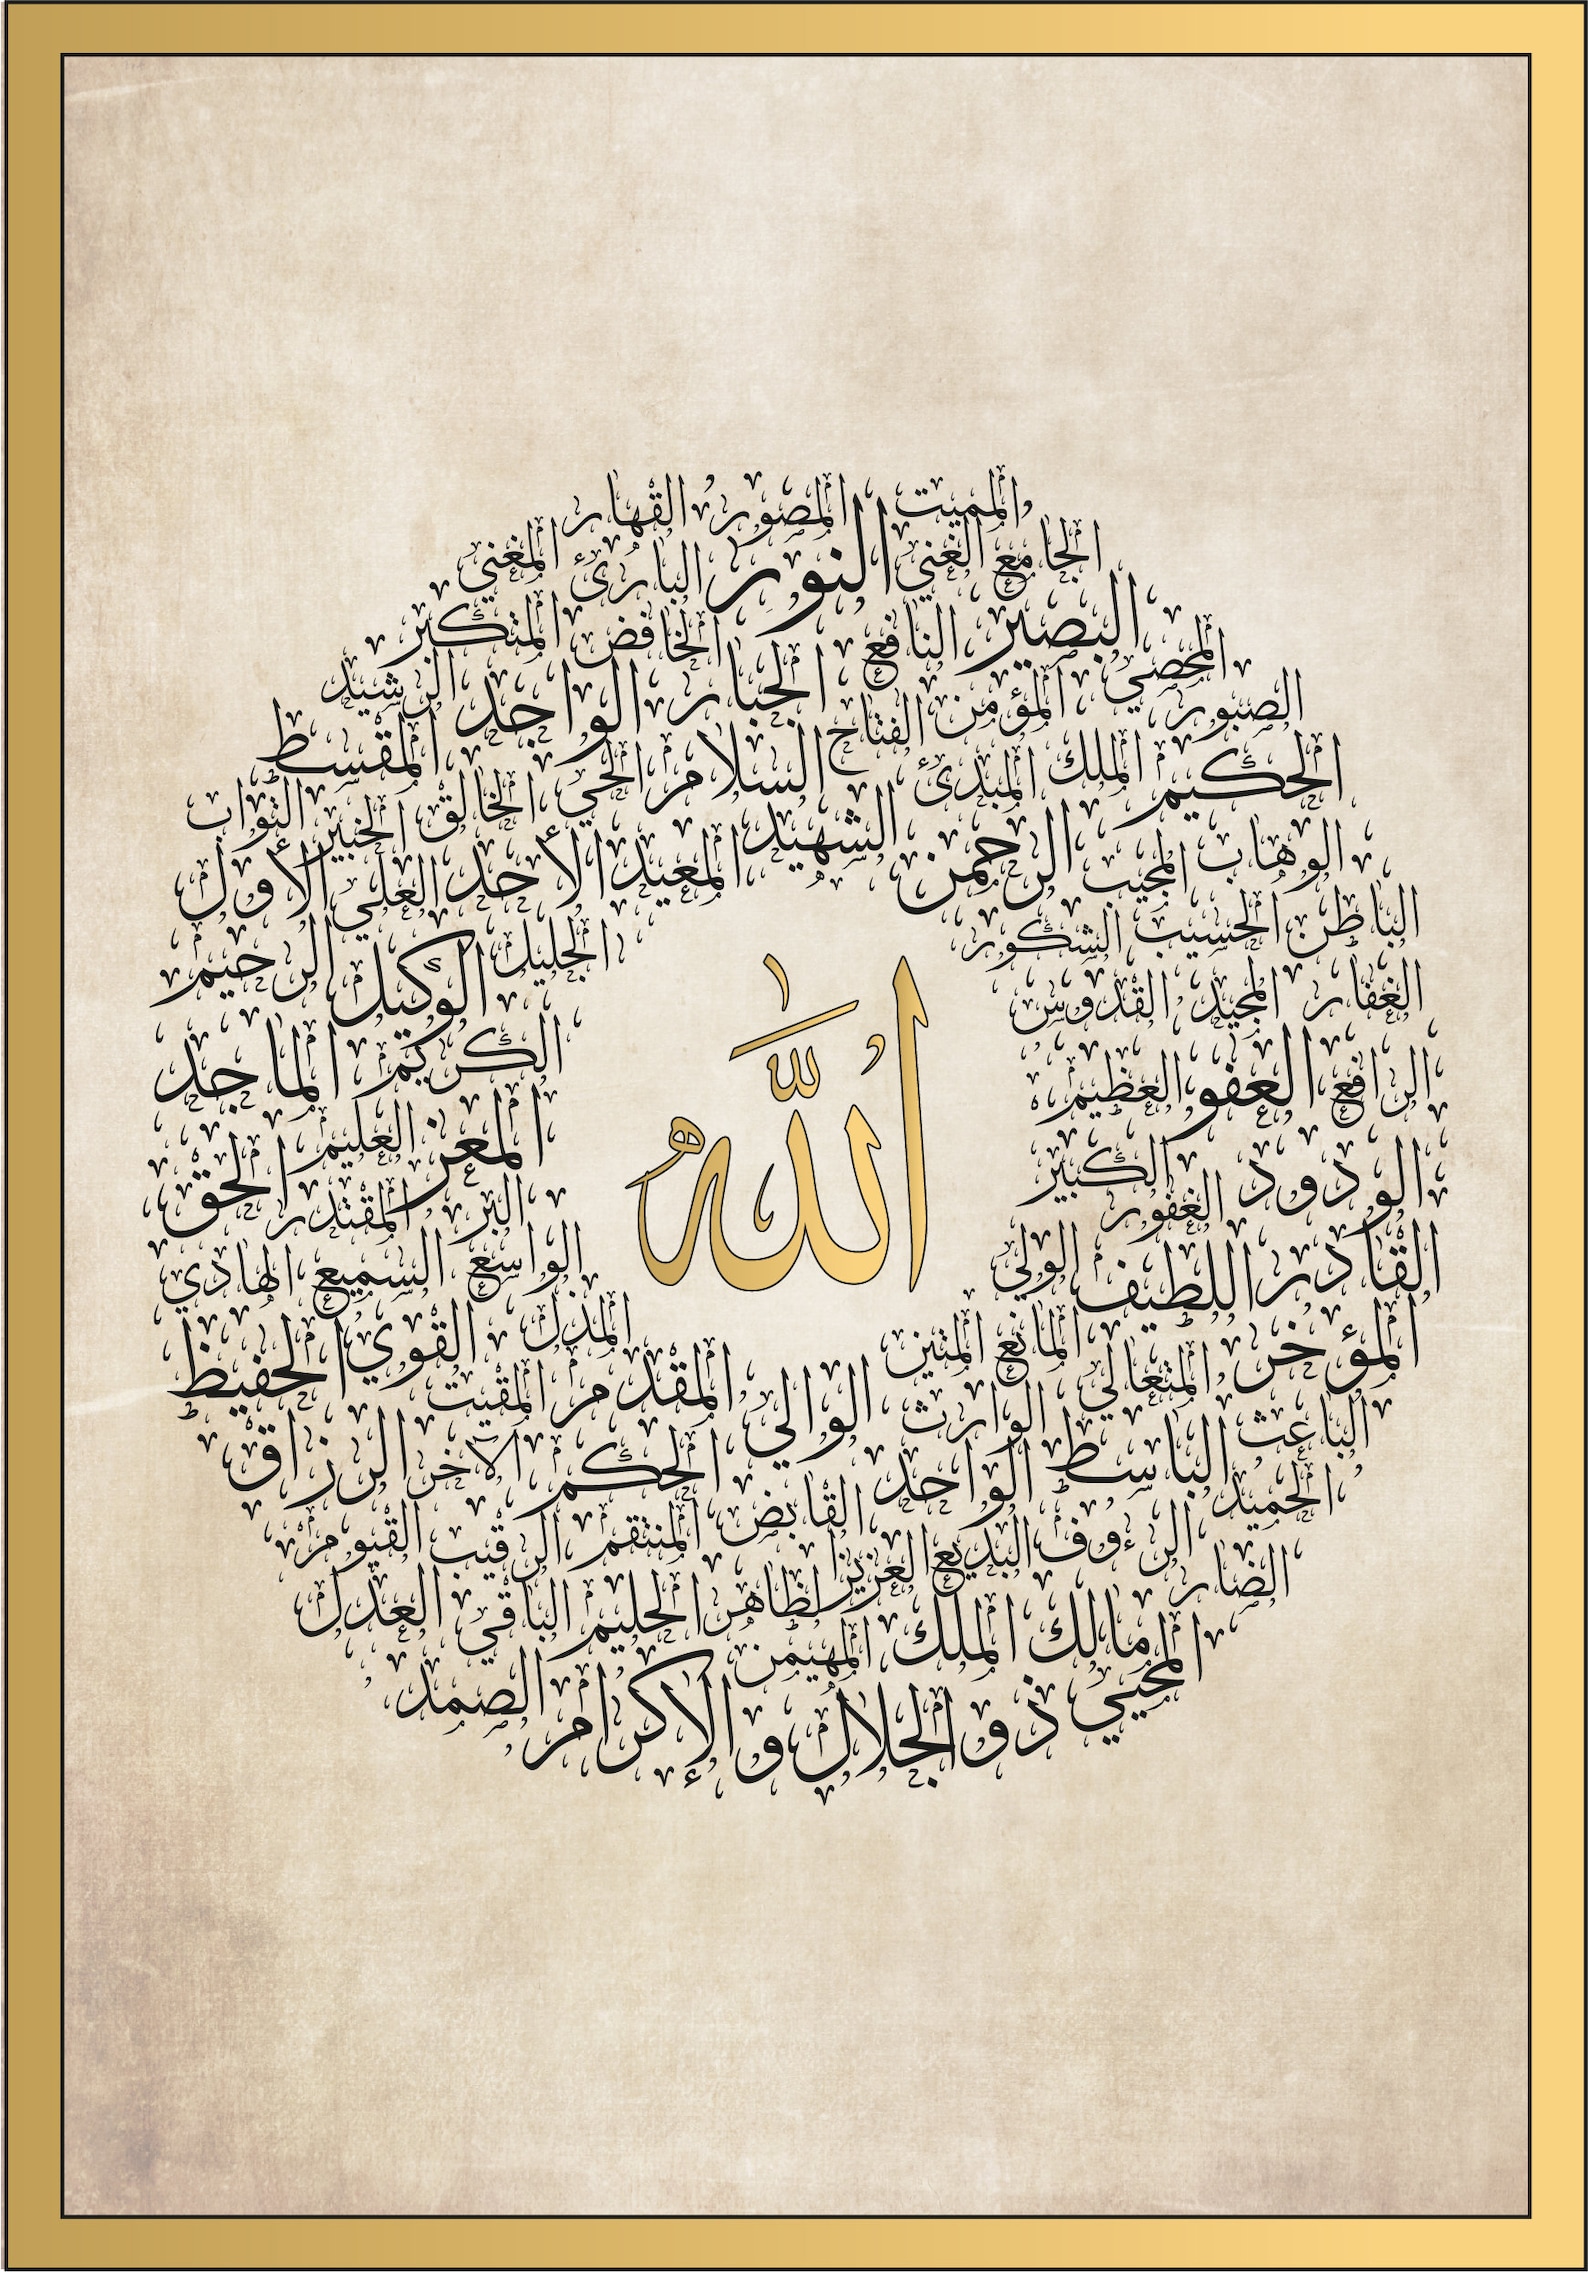 المميت المصور القهار
الجامع الغني النور البارئ المغني
المحصي البصير النافع الخافض المتكبر
الصبور المؤمن الفتاح الجبار الواجد الرشيد
الحكيم الملك المبدئ السلام الحي الخالق المقسط
الوهاب المجيب الرحمن الشهيد المعيد الأحد العلي الخبير التواب الأول
الباطن الحسيب الشكور الجليل الوكيل الرحيم
الغفار المجيد القدوس الكريم الماجد
الرافع العفو العظيم المعز العليم الحق
الله
الودود الغفور الكبير البر المقتدر
القادر اللطيف الولي الواسع السميع الهادي
المؤخر المتعالي المانع المتين المذل القوي الحفيظ
الباعث الباسط الوارث الوالي المقدم المقيت
الحميد الواحد القابض الحكم الآخر الرزاق
الضار الرءوف البديع العزيز المنتقم الرقيب القيوم
مالك الملك المهيمن الظاهر الحليم الباقي العدل
المحيي ذو الجلال و الإكرام الصمد